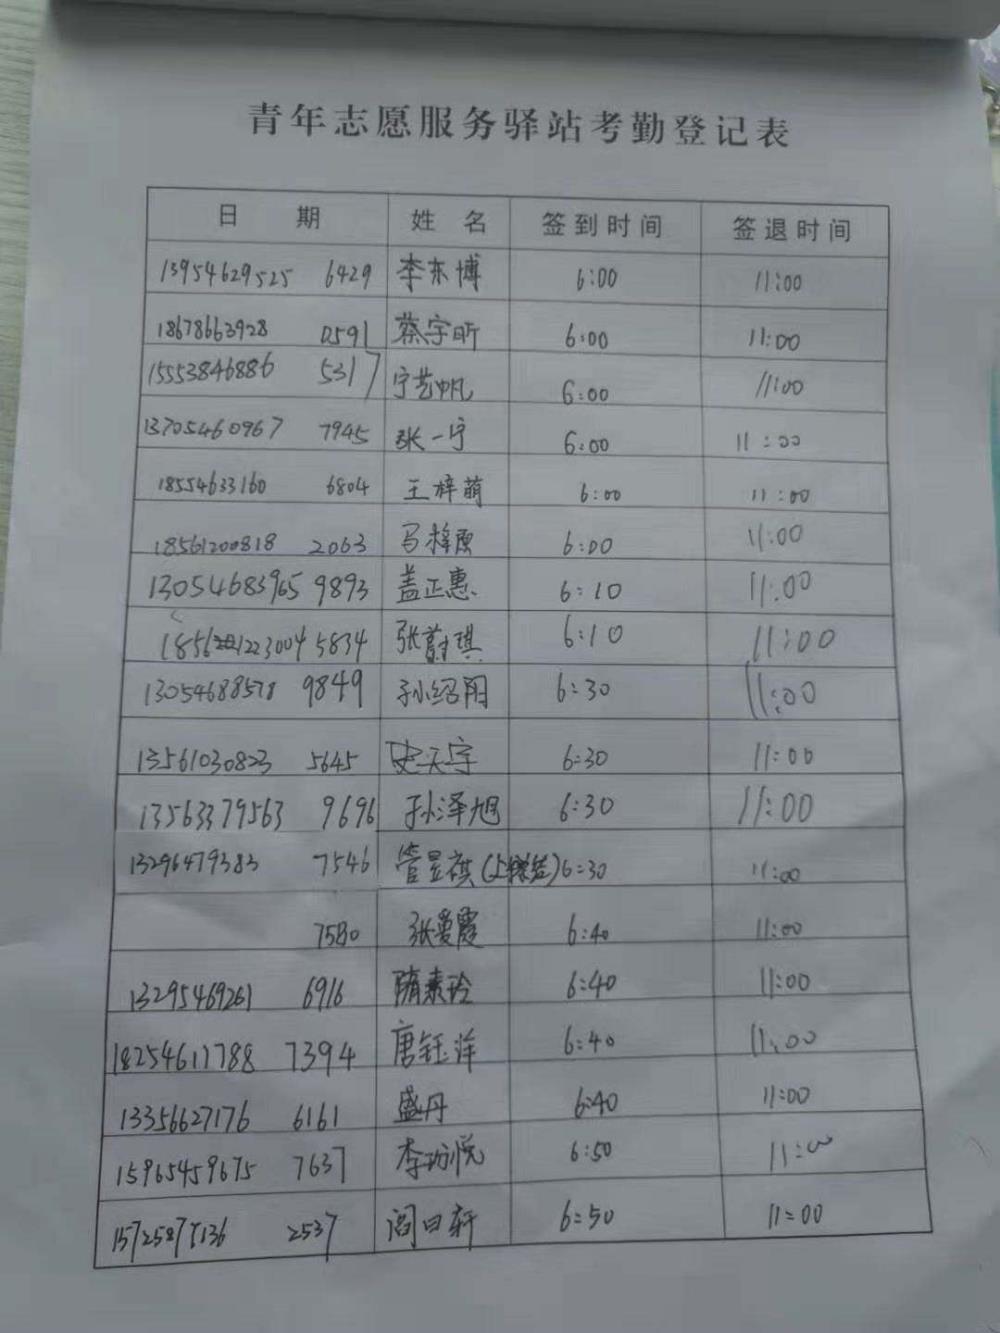 青年志愿服务驿站考勤登记表
日 期 姓 名 签到时间 签退时间
13954629525 6429 李东博 6:00 11:00
18678663928 0591 蔡宇昕 6:00 11:00
15553846886 5317 宁艺帆 6:00 11:00
13705460967 7945 张一宁 6:00 11:00
18554633160 6804 王梓萌 6:00 11:00
18561200818 2063 马梓 6:00 11:00
13054683965 9893 盖正惠 6:10 11:00
5834 张蔚琪 6:10 11:00
13054688578 9849 孙绍阳 6:30 11:00
13561030823 5645 史天宇 6:30 11:00
13563379563 9696 孙泽旭 6:30 11:00
13296479383 7546 管昱祺 6:30 11:00
7580 张爱霞 6:40 11:00
13295469261 6916 隋素玲 6:40 11:00
18254611788 7394 唐钰洋 6:40 11:00
13356627176 6161 盛丹 6:40 11:00
15965459675 7637 李玏悦 6:50 11:00
2537 阎曰轩 6:50 11:00